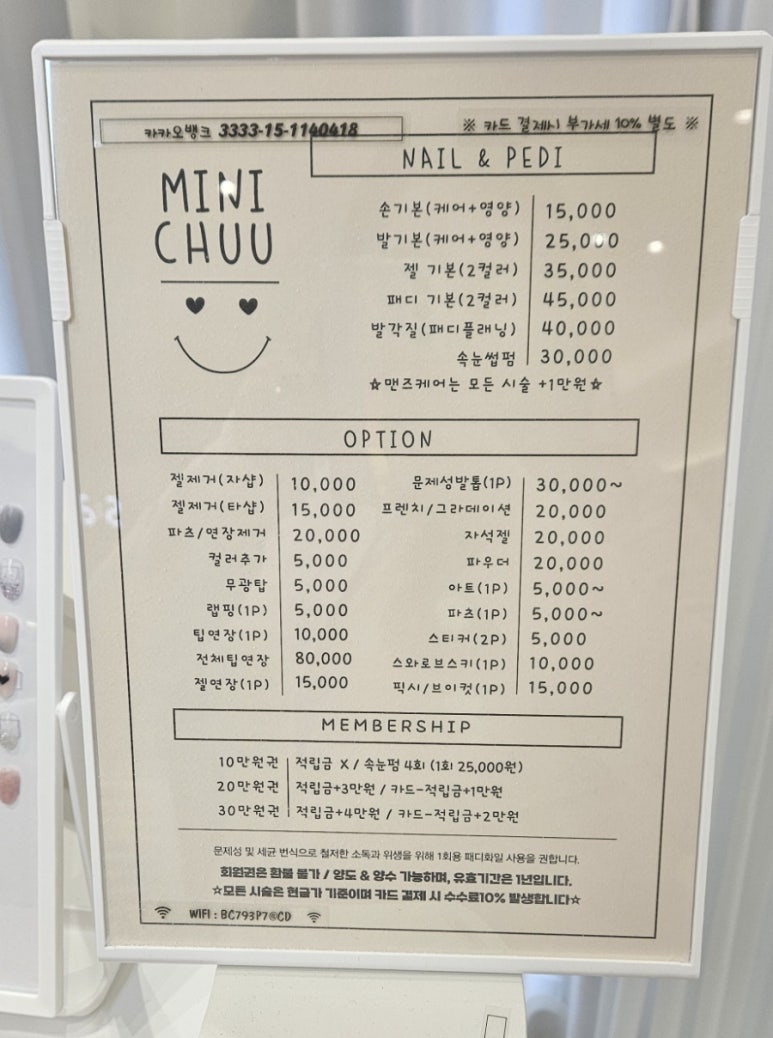 카카오뱅크 3333-15-1140418
※ 카드 결제시 부가세 10% 별도 ※
MINI
CHUU
NAIL & PEDI
손기본(케어+영양) 15,000
발기본(케어+영양) 25,000
젤 기본(2컬러) 35,000
패디 기본(2컬러) 45,000
발각질(패디플래닝) 40,000
속눈썹펌 30,000
☆맨즈케어는 모든 시술 +1만원☆
OPTION
젤제거(자샵) 10,000
젤제거(타샵) 15,000
파츠/연장제거 20,000
컬러추가 5,000
무광탑 5,000
랩핑(1P) 5,000
팁연장(1P) 10,000
전체팁연장 80,000
젤연장(1P) 15,000
문제성발톱(1P) 30,000~
프렌치/그라데이션 20,000
자석젤 20,000
파우더 20,000
아트(1P) 5,000~
파츠(1P) 5,000~
스티커(2P) 5,000
스와로브스키(1P) 10,000
픽시/브이컷(1P) 15,000
MEMBERSHIP
10만원권 적립금 X / 속눈펌 4회 (1회 25,000원)
20만원권 적립금+3만원 / 카드-적립금+1만원
30만원권 적립금+4만원 / 카드-적립금+2만원
문제성 및 세균 번식으로 철저한 소독과 위생을 위해 1회용 패디화일 사용을 권합니다.
회원권은 환불 불가 / 양도 & 양수 가능하며, 유효기간은 1년입니다.
☆모든 시술은 현금가 기준이며 카드 결제 시 수수료10% 발생합니다☆
WIFI : BC793P7@CD